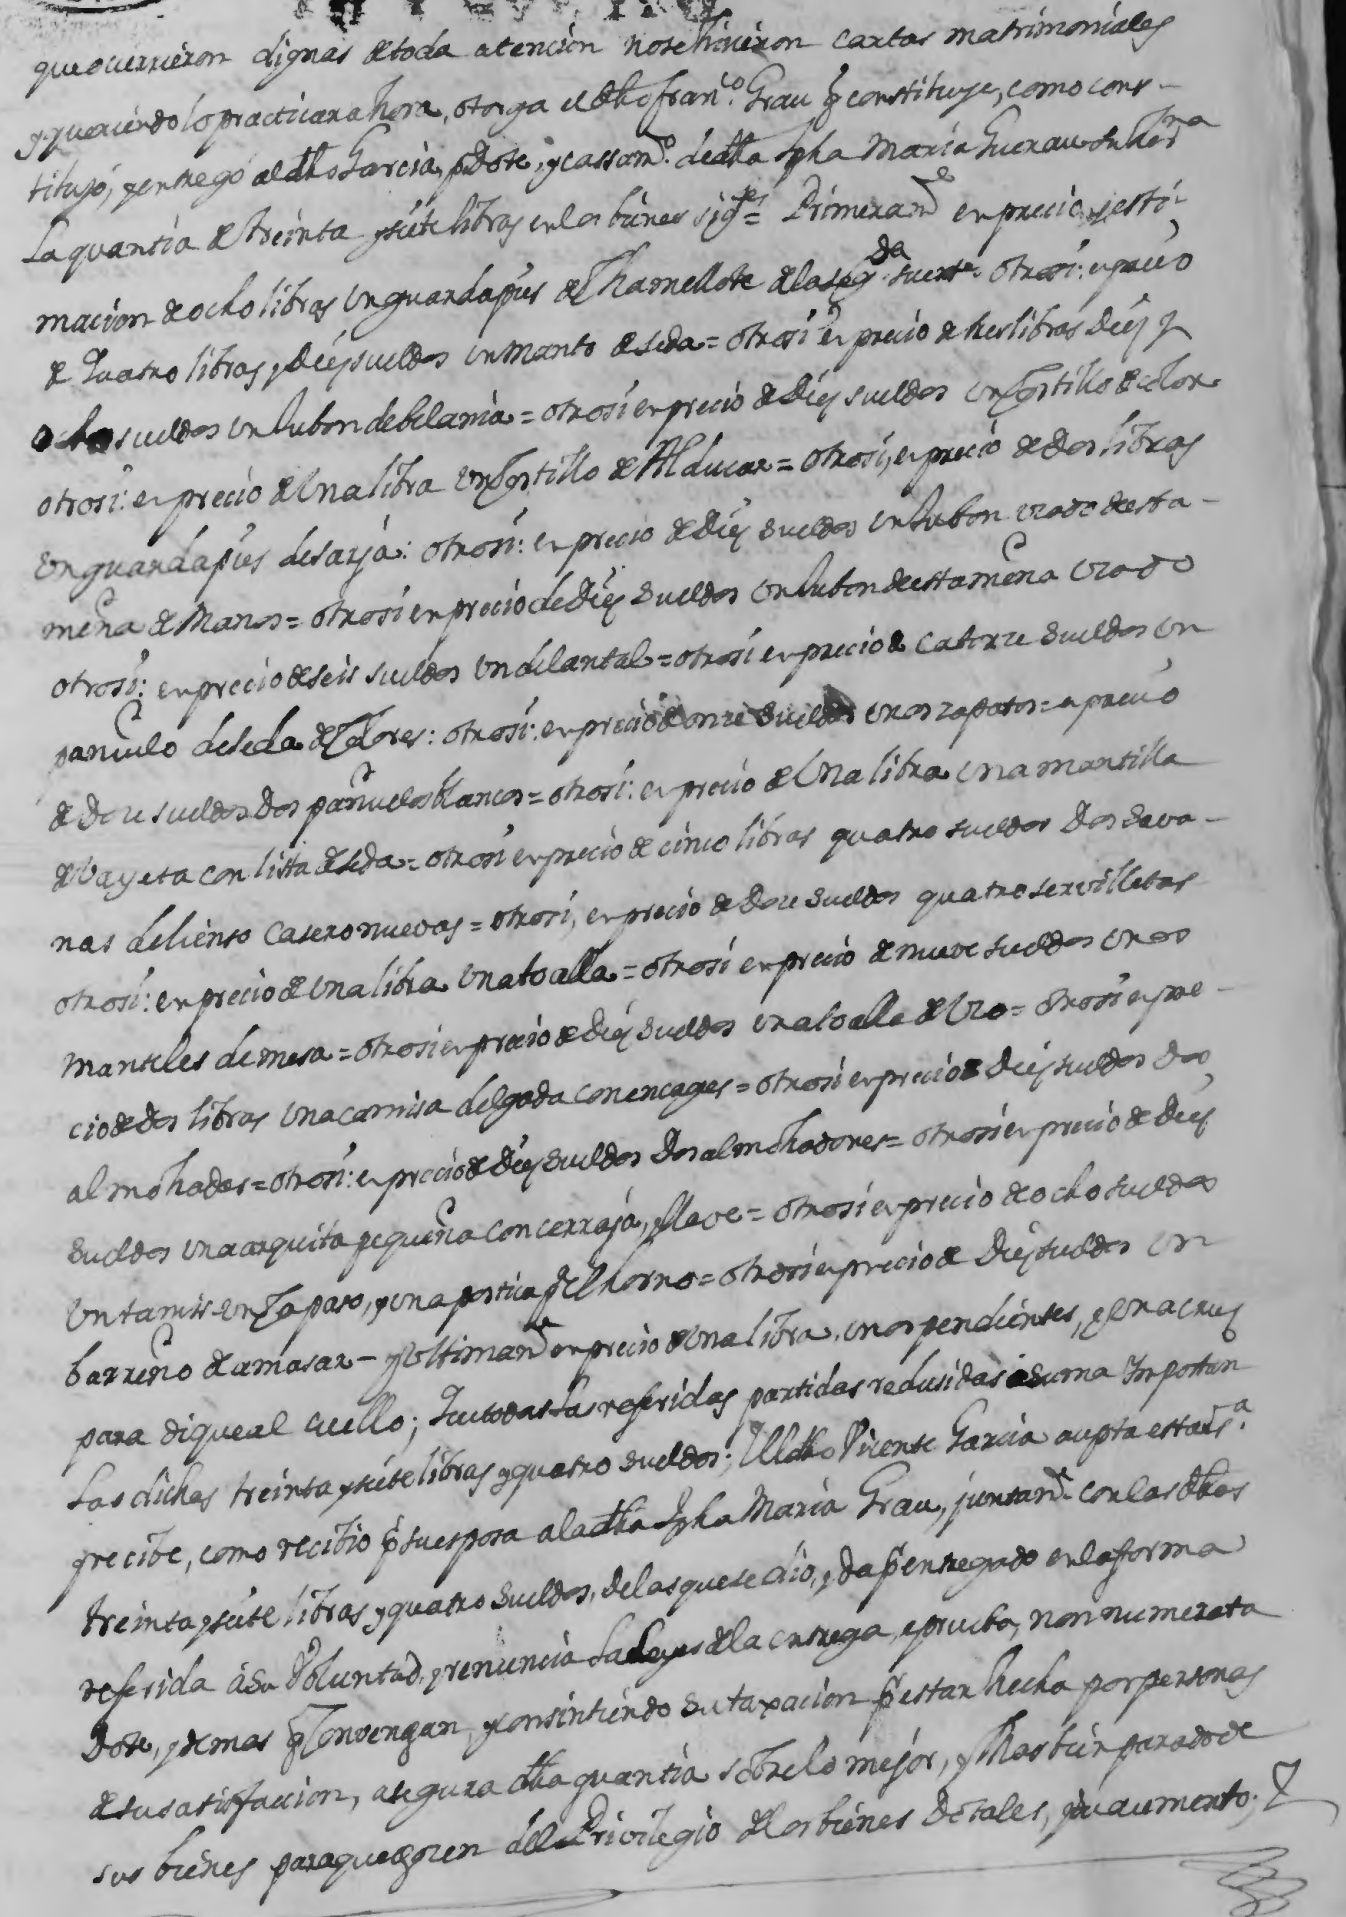 que ocurrieron dignas de toda atencion no se hicieron cartas matrimoniales
y queriendolo practicar ahora, otorga el dho Fran.co Grau q constituye, como cons-
tituyó, y entregó al dho Garcia, p Dote, y cassam.to de dha Jpha Maria Guerau su her.na
La quantia de treinta y siete libras en los bienes sig.tes = Primeram.te en precio, y esti-
macion de ocho libras un guardapies de Chamellote de la seg.da suerte otrosi: en precio
de Quatro libras, y Diez sueldos un Manto de seda = otrosi en precio de tres libras Diez y
ocho sueldos un Jubon de = otrosi en precio de Diez sueldos un Costillo de color
otrosi: en precio de Una libra un Costillo de Alducar = otrosi, en precio de dos libras
un guardapies de sarja: otrosi: en precio de Diez sueldos un Jubon usado de esta-
meña de Manos = otrosi en precio de Diez sueldos un Jubon de estameña usado
otrosi: en precio de seis sueldos un delantal = otrosi en precio de catorze sueldos un
pañuelo de seda de Colores: otrosi: en precio de onze sueldos unos zapatos = en precio
de Doze sueldos Dos pañuelos blancos = otrosi: en precio de Una libra una mantilla
de bayeta con lista de seda = otrosi en precio de cinco libras quatro sueldos dos sava-
nas de lienso casero nuevas = otrosi, en precio de Doze sueldos quatro servilletas
otrosi: en precio de una libra una toalla = otrosi en precio de nueve sueldos unos
manteles de mesa = otrosi en precio de Diez sueldos una toalla de Uso = otrosi en pre-
cio de dos libras una camisa delgada con encages = otrosi en precio de Diez sueldos dos
almohadas = otrosi: en precio de Diez sueldos Dos almohadones = otrosi en precio de Diez
sueldos una arquita pequeña con cerraja, y llave = otrosi en precio de ocho sueldos
un tamis un Capaso, y una postisa p el horno = otrosi en precio de Diez sueldos un
barreño de amasar - y Ultimam.te en precio de Una libra, unos pendientes, y una cruz
para dique al cuello; Que todas las referidas partidas redusidas a suma Importan
Las dichas treinta y siete libras y quatro sueldos; Y el dho Vicente Garcia aupta esta
y recibe, como recibio p su esposa a la dha Jpha Maria Grau, juntam.te con las dhas
treinta y siete libras y quatro sueldos, de las que se dio, y da p entregado en la forma
referida á su Voluntad, y renuncia Las Leyes de la entrega, e prueba, non numerata
Dote, y demas q Convengan, y consintiendo su taxacion p estar hecha por personas
de su satisfaccion, asegura dha quantia sobre lo mejor, y Mas bien parado de
sus bienes para que gozen del Privilegio de los bienes Dotales, y su aumento; Y